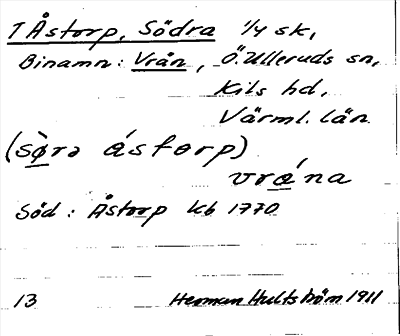 T Åstorp, Södra 1/4 sk,
Binamn: Vrån, Ö. Ulleruds sn,
Kils hd,
Värml. län
(sø̀rə ástorp)
vrǽna
Söd: Åstorp kb 1770
13 Herman Hultström 1911